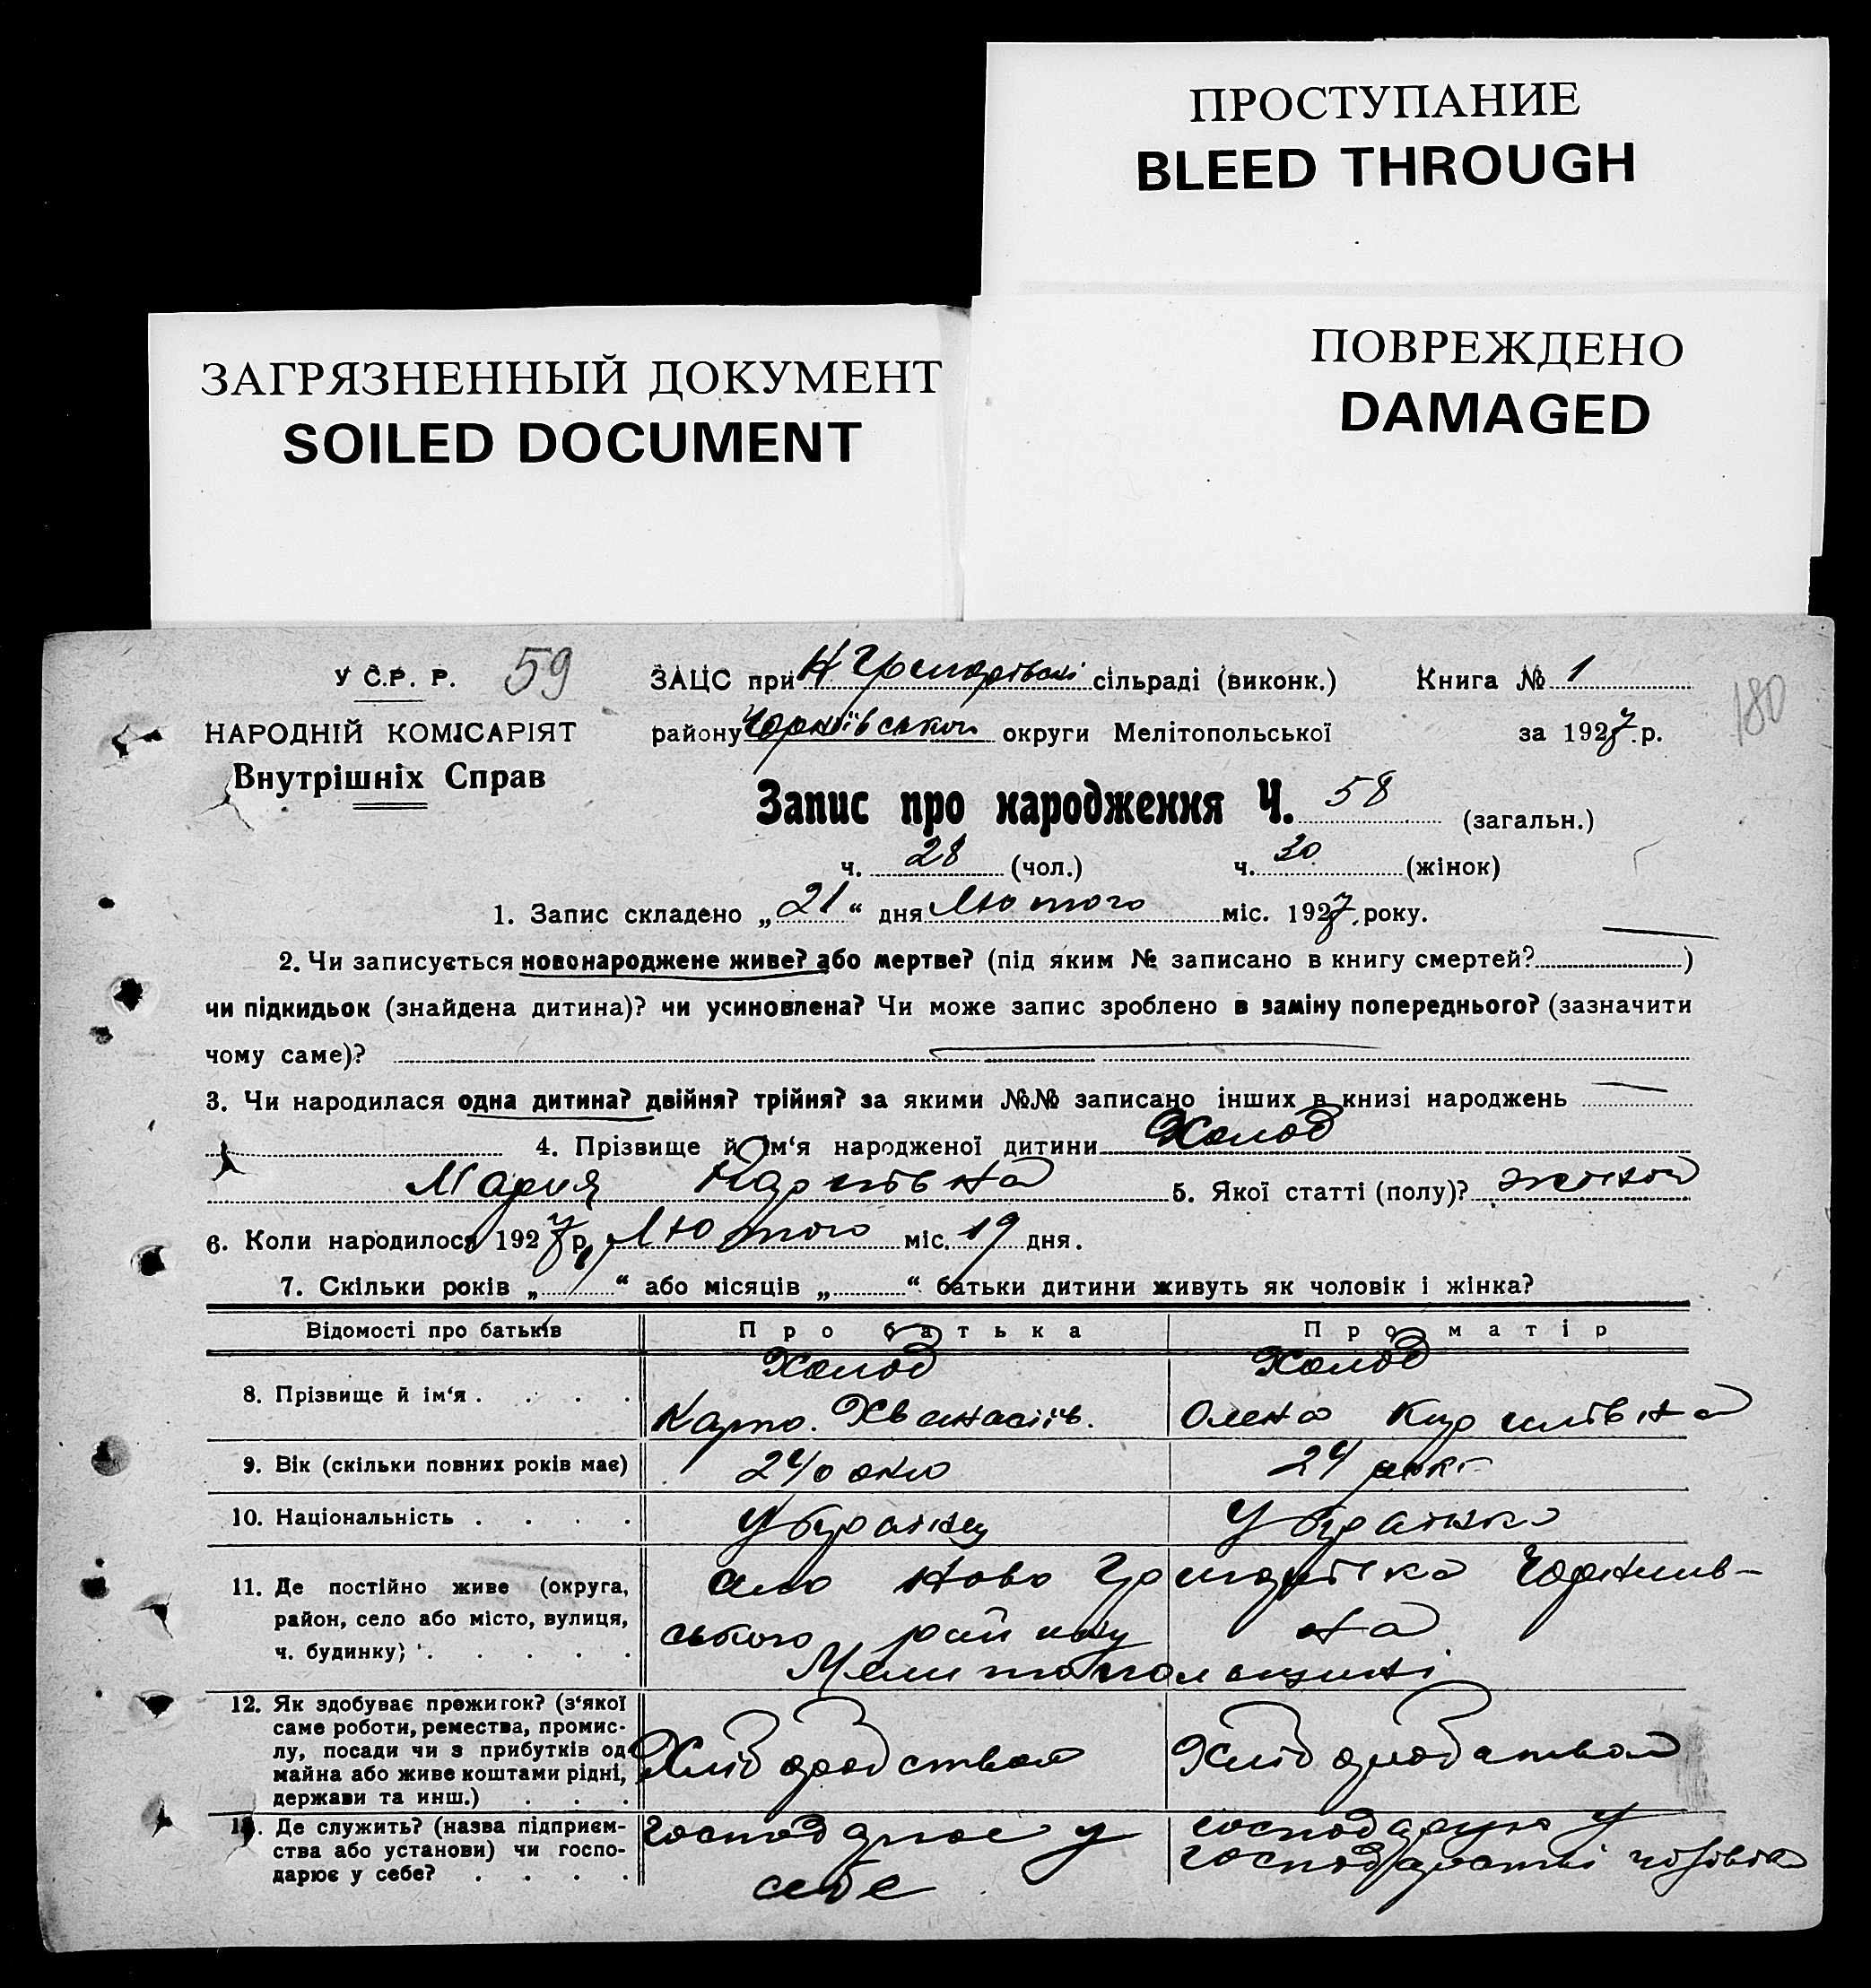 ПРОСТУПАНИЕ
BLEED THROUGH
ПОВРЕЖДЕНО
DAMAGED
ЗАГРЯЗНЕННЫЙ ДОКУМЕНТ
SOILED DOCUMENT
У С.Р. Р. 59 ЗАЦС при сільраді (виконк.) Книга № 1
180
НАРОДНІЙ КОМІСАРІЯТ району округи Мелітопольської за 1927 р.
Внутрішніх Справ
Запис про народження Ч. 58 (загальн.)
ч. 28 (чол.) ч. 30 (жінок)
1. Запис складено „21“ дня Лютого міс. 1927 року.
2. Чи записується новонароджене живе? або мертве? (під яким № записано в книгу смертей? )
чи підкидьок (знайдена дитина)? чи усиновлена? Чи може запис зроблено в заміну попереднього? (зазначити
чому саме)?
3. Чи народилася одна дитина? двійня? трійня? за якими №№ записано інших в книзі народжень
4. Прізвище й ім‘я народженої дитини Холод
Мария Карпівна 5. Якої статті (полу)?
6. Коли народилося 1927 р. Лютого міс. 19 дня.
7. Скільки років „ “ або місяців „ “ батьки дитини живуть як чоловік і жінка?
Відомості про батьків Про батька Про матір
Холод Холод
8. Прізвище й ім‘я . . . . Карпо Олена
9. Вік (скільки повних років має) 24 24
10. Національність . . . .
11. Де постійно живе (округа,
район, село або місто, вулиця,
ч. будинку) . . . . .
ського району
12. Як здобуває прожиток? (з‘якої
саме роботи, ремества, промис-
лу, посади чи з прибутків од
майна або живе коштами рідні,
держави та инш.) . . .
13. Де служить? (назва підприєм-
ства або установи) чи госпо-
дарює у себе? . . . .
господарює у
себе
господарює у
господарстві чоловіка